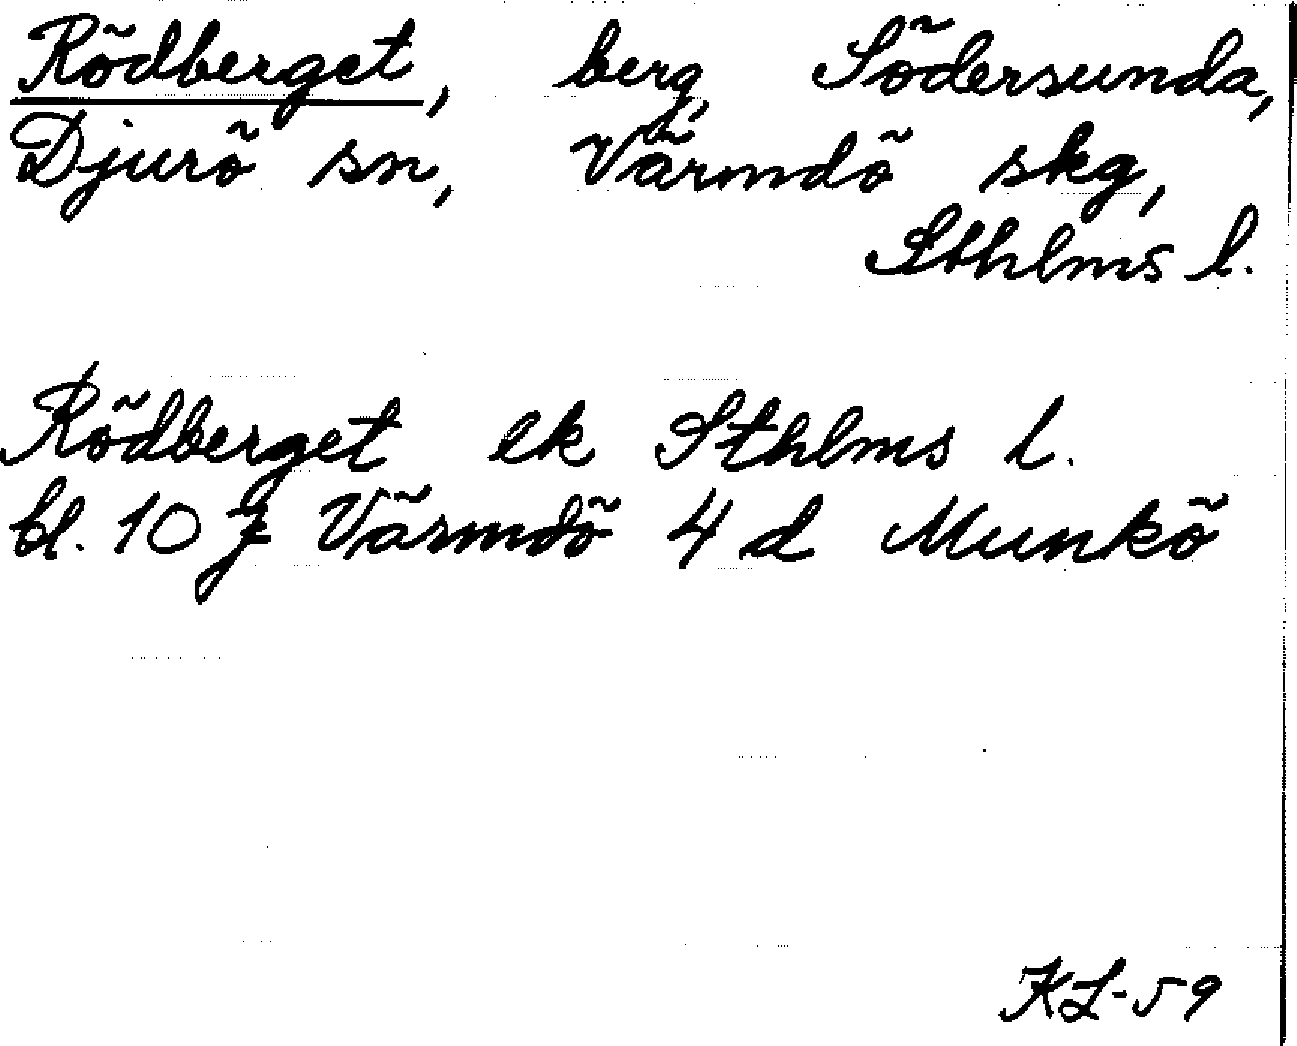 Rödberget, berg, Södersunda,
Djurö sn, Värmdö skg,
Sthlms l.
Rödberget ek Sthlms l.
bl. 10 J Värmdö 4 d Munkö
KL-59